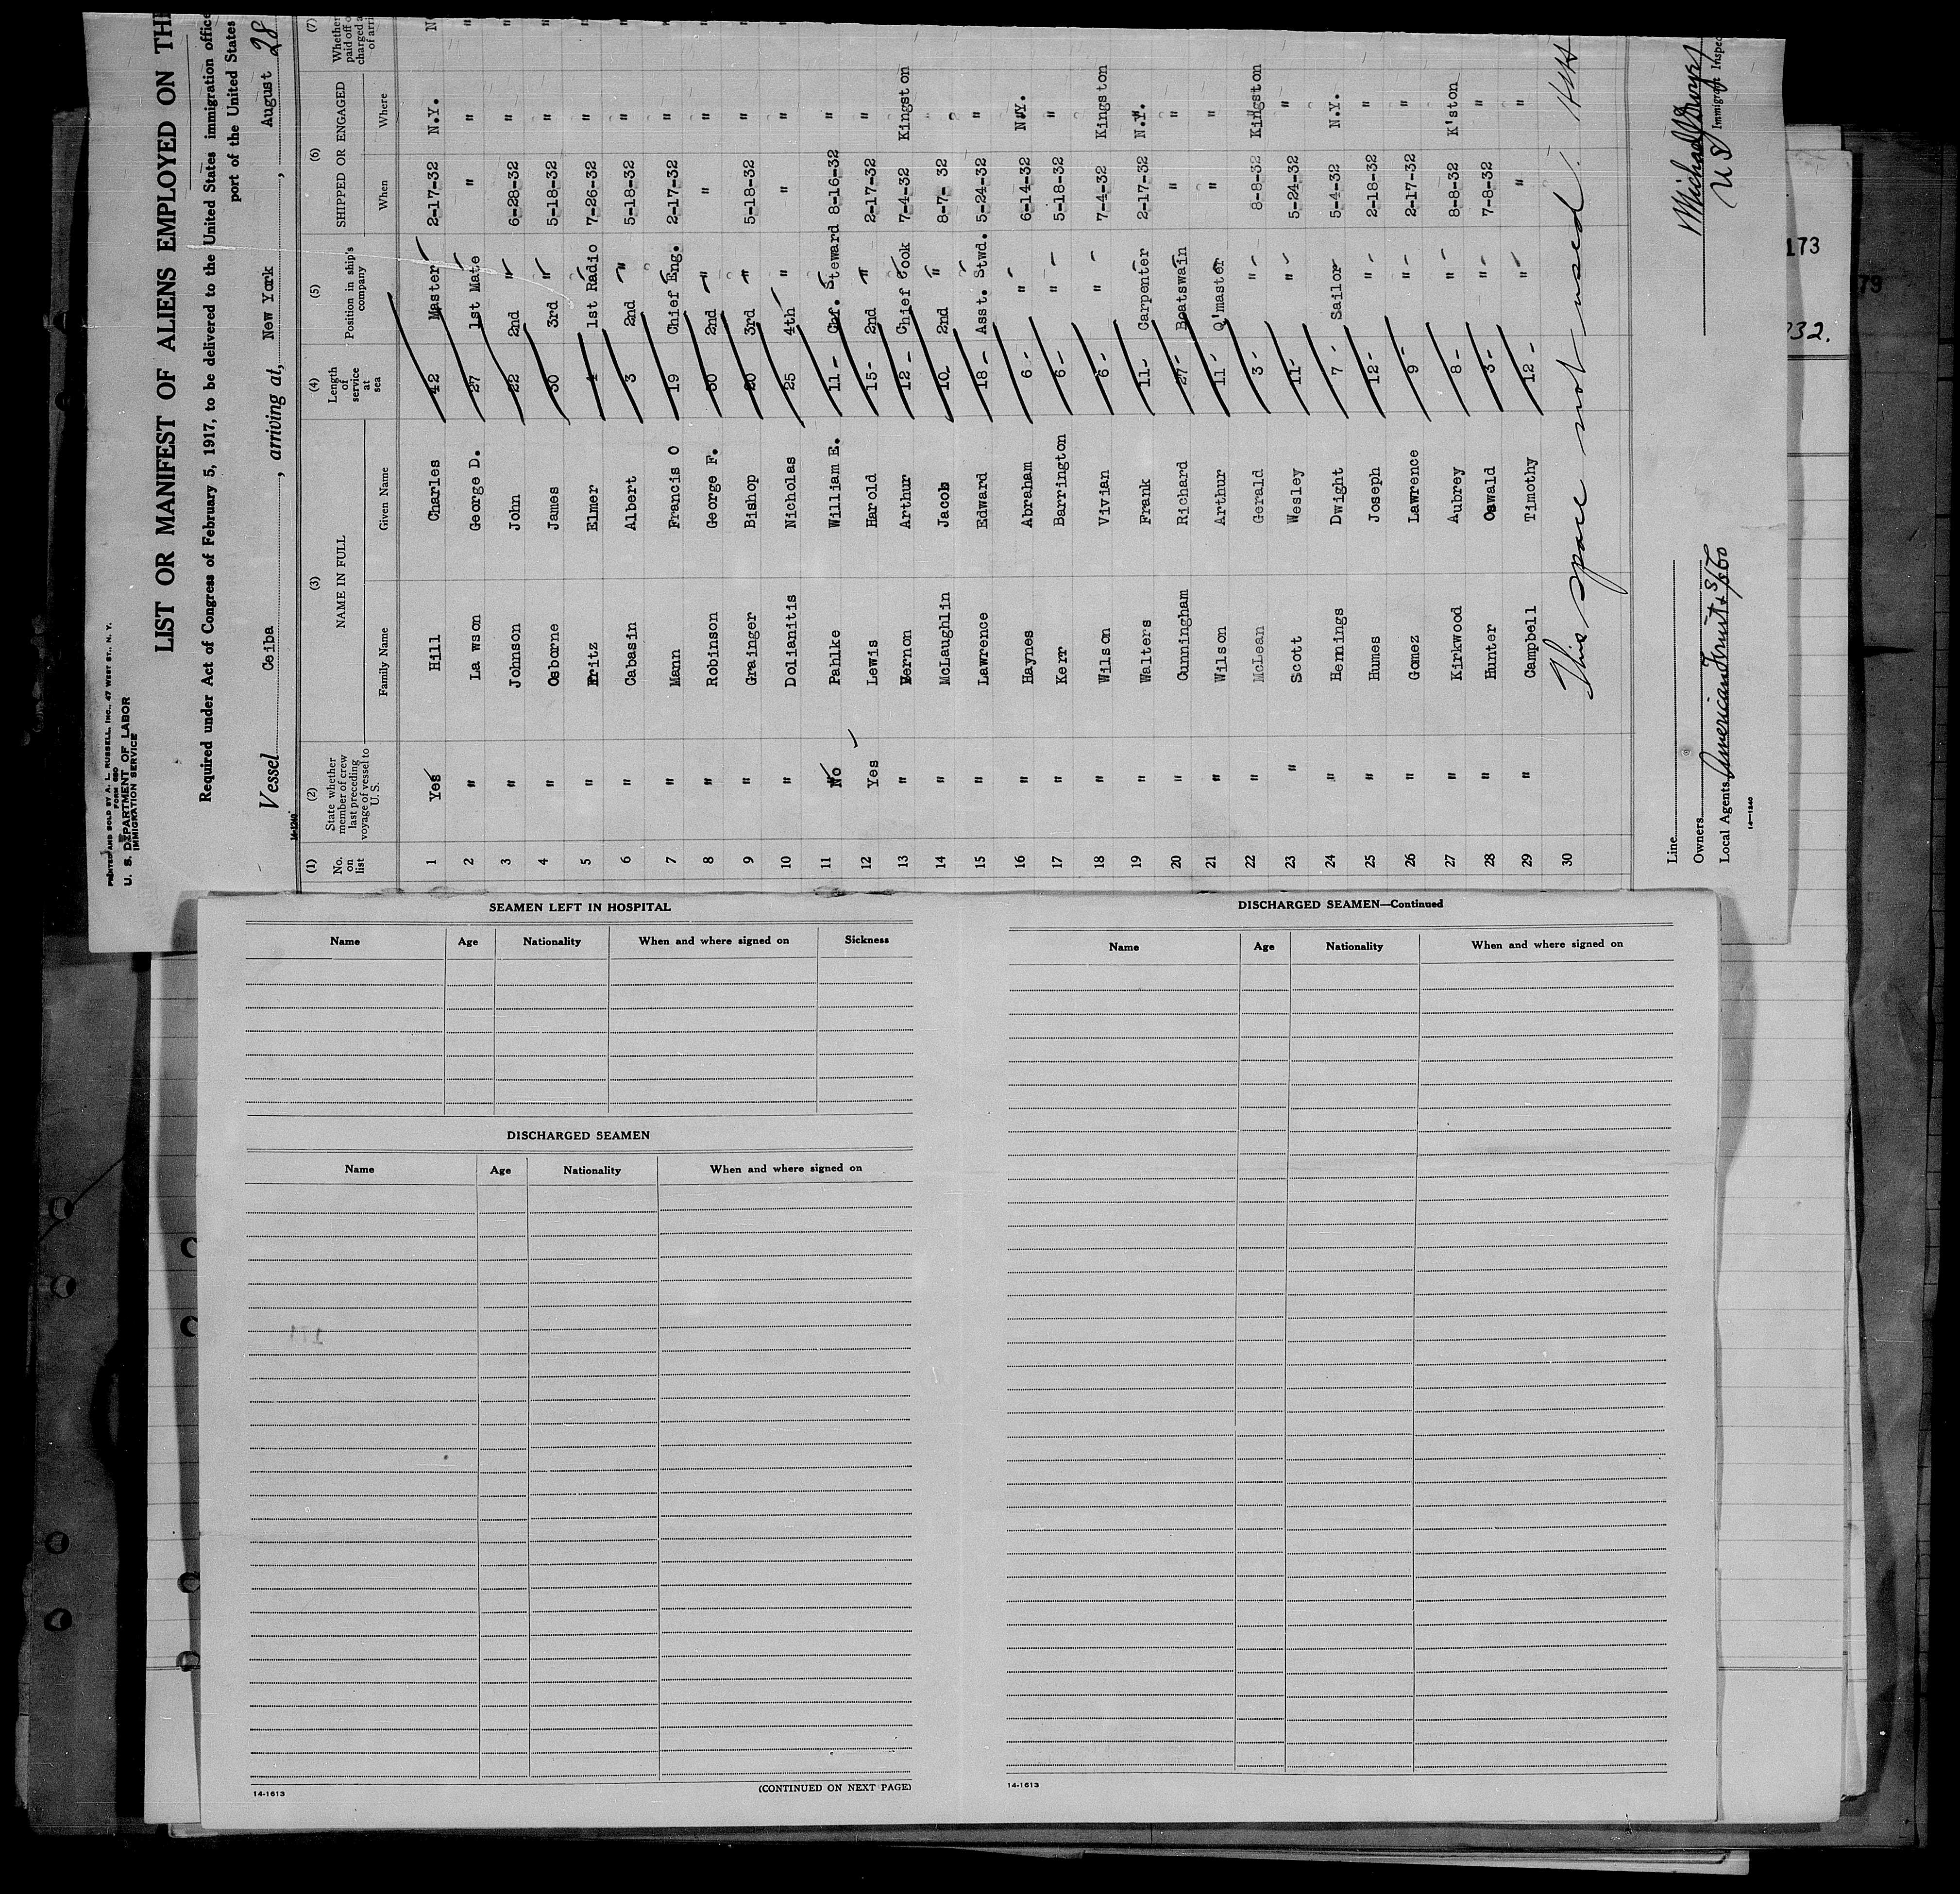 PRINTED AND SOLD BY A. L. RUSSELL, INC., 47 WEST ST., N. Y.
FORM 680
U. S. DEPARTMENT OF LABOR
IMMIGRATION SERVICE
LIST OR MANIFEST OF ALIENS EMPLOYED ON TH
Required under Act of Congress of February 5, 1917, to be delivered to the United States immigration office
port of the United States
Vessel Ceiba, arriving at, New York, August 28
14-1240
(1) (2) (3) (4) (5) (6) (7)
No. on list State whether member of crew last preceding voyage of vessel to U. S. NAME IN FULL Length of service at sea Position in ship's company SHIPPED OR ENGAGED Whether paid off o charged a of arri
Family Name Given Name When Where
1 Yes Hill Charles 42 Master 2-17-32 N.Y.
2 " La wson George D. 27 1st Mate " " "
3 " Johnson John 22 2nd " 6-28-32 " "
4 " Osborne James 30 3rd " 5-18-32 " "
5 " Fritz Elmer 4 1st Radio 7-26-32 " "
6 " Cabasin Albert 3 2nd " 5-18-32 " "
7 " Mann Francis O 19 Chief Eng. 2-17-32 " "
8 " Robinson George F. 30 2nd " " " "
9 " Grainger Bishop 20 3rd " 5-18-32 " "
10 " Dolianitis Nicholas 25 4th " " " "
11 No Pahlke William E. 11- Chf. Steward 8-16-32 " "
12 Yes Lewis Harold 15- 2nd " 2-17-32 " "
13 " Vernon Arthur 12- Chief Cook 7-4-32 Kingston "
14 " McLaughlin Jacob 10 2nd " 8-7-32 " "
15 " Lawrence Edward 18- Asst. Stwd. 5-24-32 " "
16 " Haynes Abraham 6- " 6-14-32 N.Y. "
17 " Kerr Barrington 6- " 5-18-32 " "
18 " Wilson Vivian 6- " 7-4-32 Kingston "
19 " Walters Frank 11- Carpenter 2-17-32 N.Y. "
20 " Cunningham Richard 27- Boatswain " " "
21 " Wilson Arthur 11- Q'master " " "
22 " McLean Gerald 3- " 8-8-32 Kingston "
23 " Scott Wesley 11- " 5-24-32 " "
24 " Hemmings Dwight 7- Sailor 5-4-32 N.Y. "
25 " Humes Joseph 12- " 2-18-32 " "
26 " Gomez Lawrence 9- " 2-17-32 " "
27 " Kirkwood Aubrey 8- " 8-8-32 K'ston "
28 " Hunter Oswald 3- " 7-8-32 " "
29 " Campbell Timothy 12- " " " "
30 This space not used.
Line
Owners
Local Agents American Fruit & S/S Co
14-1240
Michael
U S Immigrant Inspec
173
79
32.
SEAMEN LEFT IN HOSPITAL
Name Age Nationality When and where signed on Sickness
DISCHARGED SEAMEN
Name Age Nationality When and where signed on
14-1613
(CONTINUED ON NEXT PAGE)
DISCHARGED SEAMEN—Continued
Name Age Nationality When and where signed on
14-1613